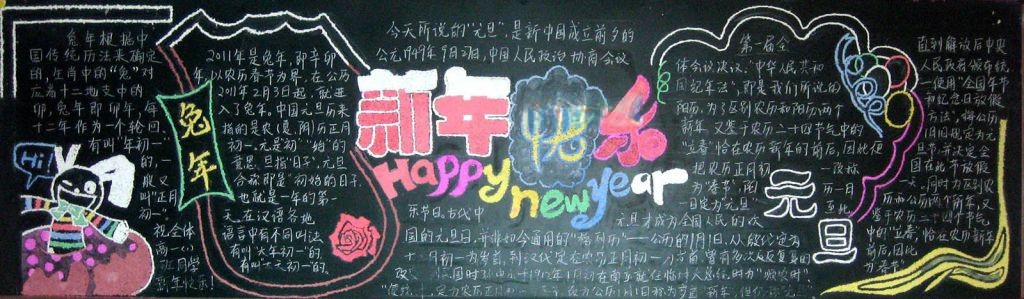 兔年根据中
国传统历法来确定
的,生肖中的“兔”对
应着十二地支中的
卯,兔年即卯年,每
十二年作为一个轮回.
有叫“年初一”
的,一
般又
叫“正月
初一”。
祝全体
同学
Hi!
兔年
2011年是兔年,即辛卯
年,以农历春节为界,在公历
2011年2月3日起,就进
入了兔年。中国元旦历来
指的是农(夏、阴)历正月
初一。元是“初”“始”的
意思,旦指“日子”,元旦
合称即是“初始的日子”,
也就是一年的第
一天。在汉语各地
语言中有不同叫法
有叫“大年初一”的,
有叫“大天初一”的,
今天所说的“元旦”,是新中国成立前夕的
公元1949年9月27日,中国人民政治协商会议
新年快乐
Happy
new year
第一届全
体会议决议:“中华人民共和
国纪年法”,即是我们所说的
阳历。为了区别农历和阳历两个
新年,又鉴于农历二十四节气中的
“立春”恰在农历新年的前后,因此便
把农历正月初
一改称
为“春节”,阳
历一日
定为“元旦”,
至此
元旦才成为全国人民的欢
乐节日。古代中
国的元旦日,并非如今通用的“格利历”——公历的1月1日。从殷代定为
十二月初一为岁首,到汉代定在农历正月初一
元旦
直到解放后中央
人民政府颁布统
一使用“全国年节
和纪念日放假
方法”,将公历
1月1日规定为元
旦节,并决定全
国在此节放假
一天。同时为区别农
历两个新年,又
鉴于农历二十四节气
中的“立春”恰在农历新年
前后,因此